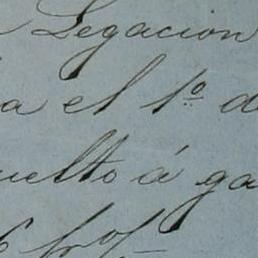 Legacion
a el 1º d
uelto á ga